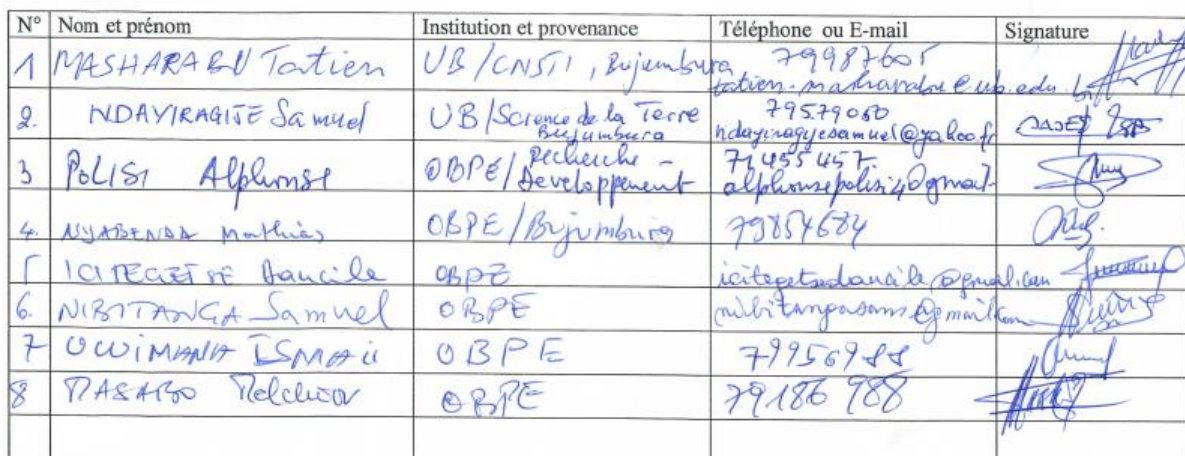 N° Nom et prénom Institution et provenance Téléphone ou E-mail Signature
1 MASHARABU Tatien UB/CNSTI, Bujumbura 79987605
tatien.masharabu@ub.edu.bi
2. NDAYIRAGIJE Samuel UB/Science de la Terre 79579060
Bujumbura ndayiragyesamuel@yahoo.fr
3 POLISI Alphonse OBPE/Recherche - 71455457
Developpement alphonsepolisi40@gmail-
4. NYABENDA Mathias OBPE/Bujumbura 79854684
5 ICITEGETSE Dancile OBPE icitegetsedancile@gmail.com
6. NIBITANGA Samuel OBPE nibitangasam@gmail.com
7 UWIMANA ISMAiL OBPE 79956988
8 MASABO Melchior OBPE 79186988